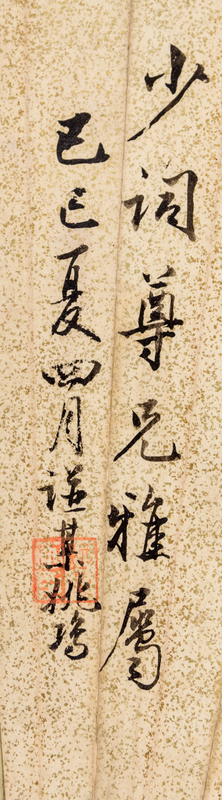 少詞尊兄雅屬
己巳夏四月其姚